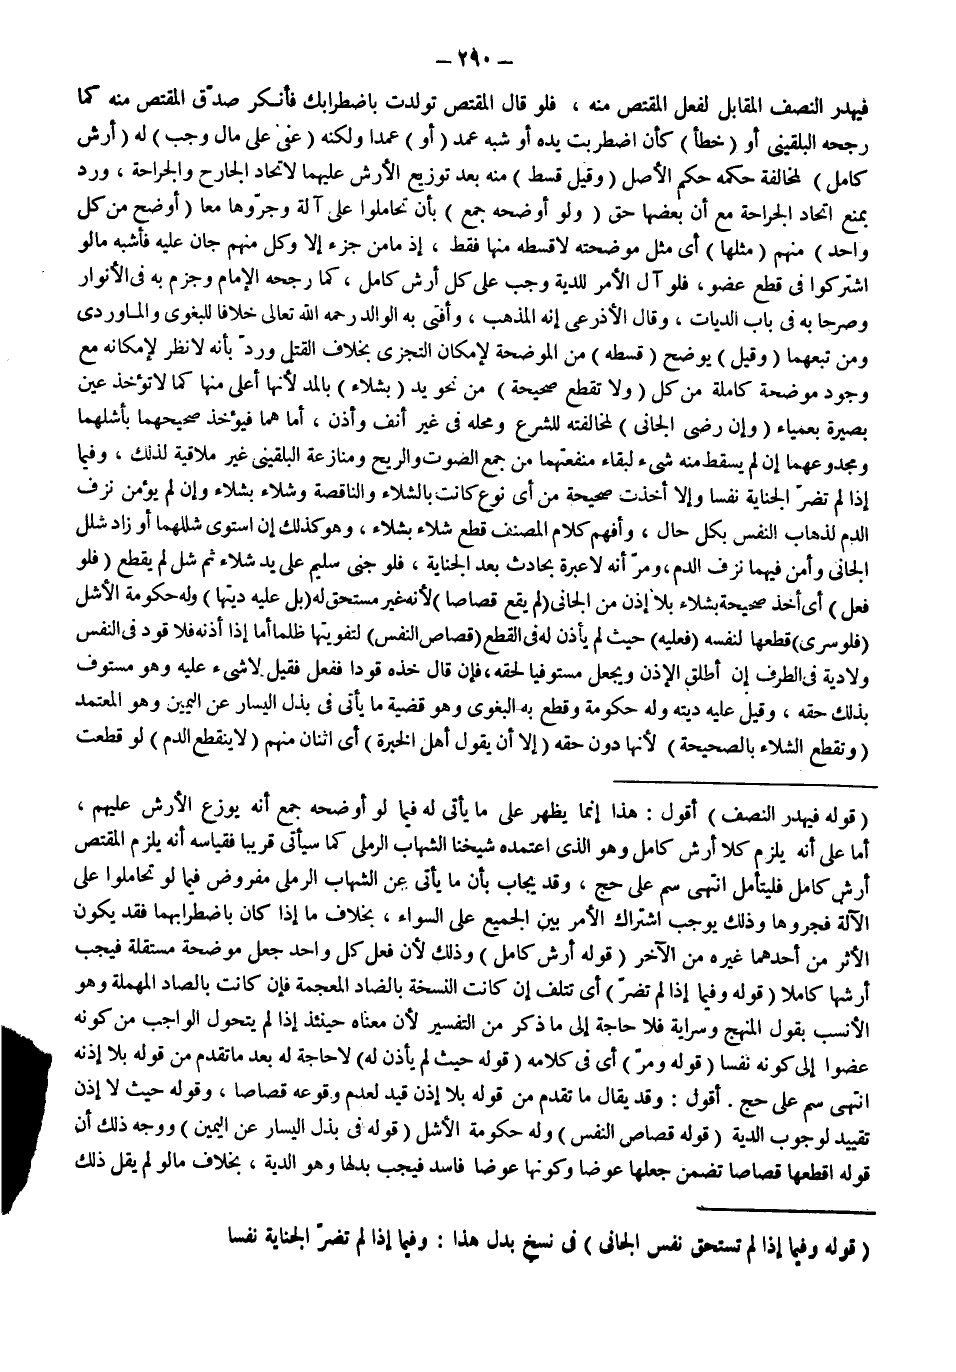 – ٢٩٠ –
فيهدر النصف المقابل لفعل المقتص منه ، فلو قال المقتص تولدت باضطرابك فأنكر صدّق المقتص منه كما
رجحه البلقينى أو ( خطأ ) كأن اضطربت يده أو شبه عمد ( أو ) عمدا ولكنه ( عفى على مال وجب ) له ( أرش
كامل ) لمخالفة حكمه حكم الأصل ( وقيل قسط ) منه بعد توزيع الأرش عليهما لاتحاد الجارح والجراحة ، ورد
بمنع اتحاد الجراحة مع أن بعضها حق ( ولو أوضحه جمع ) بأن تحاملوا على آلة وجرّوها معا ( أوضح من كل
واحد ) منهم ( مثلها ) أى مثل موضحته لاقسطه منها فقط ، إذ مامن جزء إلا وكل منهم جان عليه فأشبه مالو
اشتركوا فى قطع عضو ، فلو آل الأمر للدية وجب على كل أرش كامل ، كما رجحه الإمام وجزم به فى الأنوار
وصرحا به فى باب الديات ، وقال الأذرعى إنه المذهب ، وأفتى به الوالد رحمه الله تعالى خلافا للبغوى والماوردى
ومن تبعهما ( وقيل ) يوضح ( قسطه ) من الموضحة لإمكان التجزى بخلاف القتل وردّ بأنه لانظر لإمكانه مع
وجود موضحة كاملة من كل ( ولا تقطع صحيحة ) من نحو يد ( بشلاء ) بالمد لأنها أعلى منها كما لاتؤخذ عين
بصيرة بعمياء ( وإن رضى الجانى ) لمخالفته للشرع ومحله فى غير أنف وأذن ، أما هما فيؤخذ صحيحهما بأشلهما
ومجدوعهما إن لم يسقط منه شىء لبقاء منفعتهما من جمع الصوت والريح ومنازعة البلقينى غير ملاقية لذلك ، وفيما
إذا لم تضرّ الجناية نفسا وإلا أخذت صحيحة من أى نوع كانت بالشلاء والناقصة وشلاء بشلاء وإن لم يؤمن نزف
الدم لذهاب النفس بكل حال ، وأفهم كلام المصنف قطع شلاء بشلاء ، وهو كذلك إن استوى شللهما أو زاد شلل
الجانى وأمن فيهما نزف الدم، ومرّ أنه لاعبرة بحادث بعد الجناية ، فلو جنى سليم على يد شلاء ثم شل لم يقطع ( فلو
فعل ) أى أخذ صحيحة بشلاء بلا إذن من الجانى (لم يقع قصاصا )لأنه غير مستحق له(بل عليه ديتها ) وله حكومة الأشل
(فلو سرى) قطعها لنفسه (فعليه) حيث لم يأذن له فى القطع (قصاص النفس) لتفويتها ظلما أما إذا أذنه فلا قود فى النفس
ولادية فى الطرف إن أطلق الإذن ويجعل مستوفيا لحقه، فإن قال خذه قودا ففعل فقيل لاشىء عليه وهو مستوف
بذلك حقه ، وقيل عليه ديته وله حكومة وقطع به البغوى وهو قضية ما يأتى فى بذل اليسار عن اليمين وهو المعتمد
( وتقطع الشلاء بالصحيحة ) لأنها دون حقه ( إلا أن يقول أهل الخبرة ) أى اثنان منهم ( لاينقطع الدم ) لو قطعت
( قوله فيهدر النصف ) أقول : هذا إنما يظهر على ما يأتى له فيما لو أوضحه جمع أنه يوزع الأرش عليهم ،
أما على أنه يلزم كلا أرش كامل وهو الذى اعتمده شيخنا الشهاب الرملى كما سيأتى قريبا فقياسه أنه يلزم المقتص
أرش كامل فليتأمل انتهى سم على حج ، وقد يجاب بأن ما يأتى عن الشهاب الرملى مفروض فيما لو تحاملوا على
الآلة فجروها وذلك يوجب اشتراك الأمر بين الجميع على السواء ، بخلاف ما إذا كان باضطرابهما فقد يكون
الأثر من أحدهما غيره من الآخر ( قوله أرش كامل ) وذلك لأن فعل كل واحد جعل موضحة مستقلة فيجب
أرشها كاملا ( قوله وفيما إذا لم تضرّ ) أى تتلف إن كانت النسخة بالضاد المعجمة فإن كانت بالصاد المهملة وهو
الأنسب بقول المنهج وسراية فلا حاجة إلى ما ذكر من التفسير لأن معناه حينئذ إذا لم يتحول الواجب من كونه
عضوا إلى كونه نفسا ( قوله ومرّ ) أى فى كلامه ( قوله حيث لم يأذن له) لاحاجة له بعد ماتقدم من قوله بلا إذنه
انتهى سم على حج . أقول : وقد يقال ما تقدم من قوله بلا إذن قيد لعدم وقوعه قصاصا ، وقوله حيث لا إذن
تقييد لوجوب الدية ( قوله قصاص النفس ) وله حكومة الأشل ( قوله فى بذل اليسار عن اليمين ) ووجه ذلك أن
قوله اقطعها قصاصا تضمن جعلها عوضا وكونها عوضا فاسد فيجب بدلها وهو الدية ، بخلاف مالو لم يقل ذلك
( قوله وفيما إذا لم تستحق نفس الجانى ) فى نسخ بدل هذا : وفيما إذا لم تضرّ الجناية نفسا